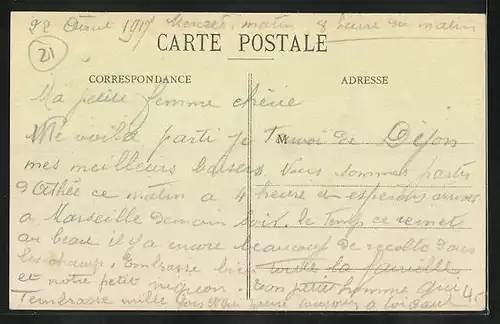 22 Aout 1917 Mercredi matin 8 heure du matin
21
CARTE POSTALE
CORRESPONDANCE
ADRESSE
Ma petite femme chérie
Me voila parti je t'envoi de Dijon
M
mes meilleurs baisers Nous sommes partis
d'Athée ce matin a 4 heure et esperons arriver
a Marseille demain soir. le temps ce remet
au beau il y a encore beaucoup de recolte dans
les champs. Embrasse bien toute la famille
et notre petit mignon. Ton petit homme qui
t'embrasse mille fois et qui pense toujours a toi